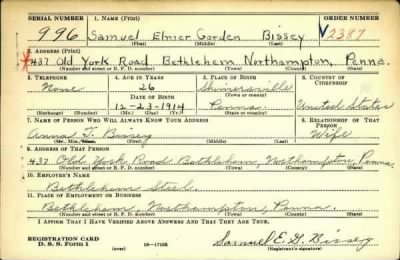 SERIAL NUMBER 1. NAME (Print) ORDER NUMBER
996 Samuel Elmer Gorden Bissey V2387
(First) (Middle) (Last)
2. ADDRESS (Print)
437 Old York Road Bethlehem Northampton, Penna.
(Number and street or R. F. D. number) (Town) (County) (State)
3. TELEPHONE 4. AGE IN YEARS 5. PLACE OF BIRTH 6. COUNTRY OF CITIZENSHIP
None 26 Shimersville
DATE OF BIRTH (Town or county)
12-23-1914 Penna. United States
(Exchange) (Number) (Mo.) (Day) (Yr.) (State or country)
7. NAME OF PERSON WHO WILL ALWAYS KNOW YOUR ADDRESS 8. RELATIONSHIP OF THAT PERSON
Anna F. Bissey Wife
(Mr., Mrs., Miss) (First) (Middle) (Last)
9. ADDRESS OF THAT PERSON
437 Old York Road Bethlehem, Northampton, Penna.
(Number and street or R. F. D. number) (Town) (County) (State)
10. EMPLOYER'S NAME
Bethlehem Steel.
11. PLACE OF EMPLOYMENT OR BUSINESS
Bethlehem, Northampton, Penna.
(Number and street or R. F. D. number) (Town) (County) (State)
I AFFIRM THAT I HAVE VERIFIED ABOVE ANSWERS AND THAT THEY ARE TRUE.
REGISTRATION CARD
D. S. S. Form 1 (over) 16—17105 Samuel E. G. Bissey
(Registrant's signature)